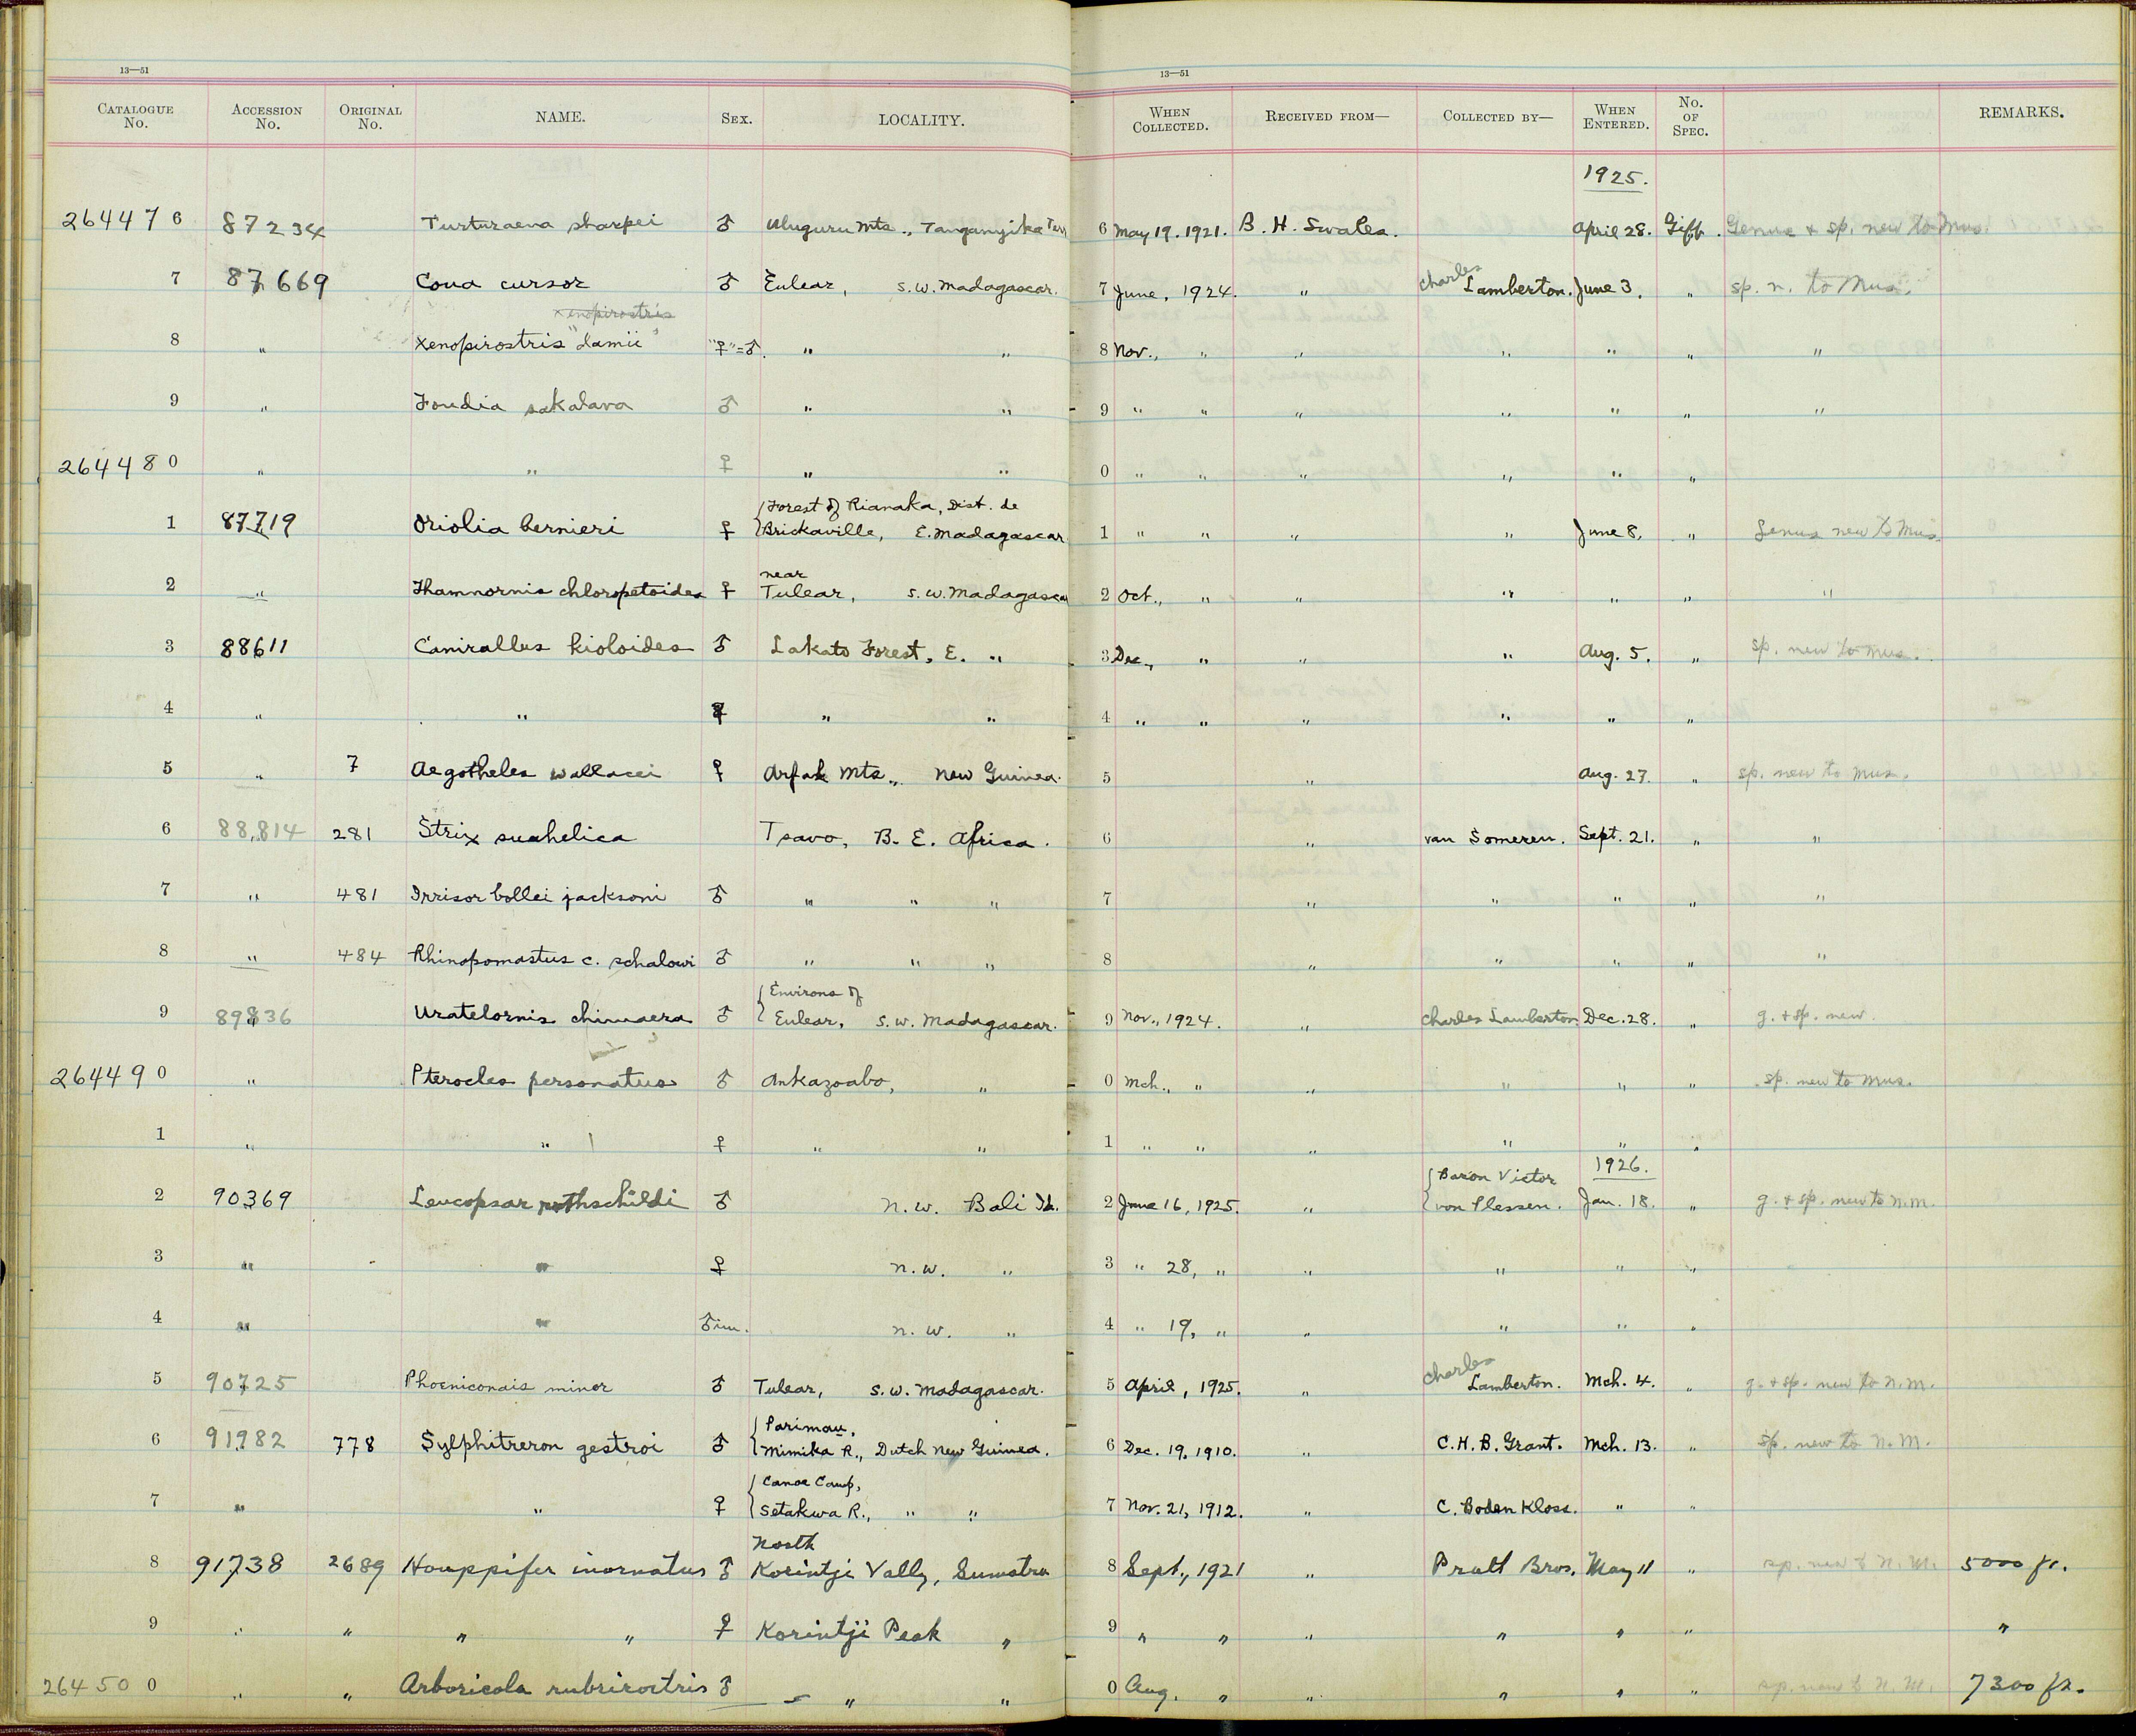 13—51
13—51
CATALOGUE No. ACCESSION No. ORIGINAL No. NAME. SEX. LOCALITY. WHEN COLLECTED. RECEIVED FROM— COLLECTED BY— WHEN ENTERED. No. OF SPEC. REMARKS.
1925.
264476 87234 Turturaena sharpei ♂ Uluguru Mts., Tanganyika Terr 6 May 19. 1921. B. H. Swales. April 28. Gift. Genus & sp. new to Mus.
7 87669 Coua cursor ♂ Tulear, S.W. Madagascar. 7 June, 1924. " Charles Lamberton. June 3. " sp. n. to Mus.
Xenopirostris
8 " Xenopirostris "damii" "♀"=♂. " " 8 Nov., " " " " " "
9 " Foudia sakalava ♂ " " 9 " " " " " " "
264480 " " ♀ " " 0 " " " " " "
{Forest of Rianaka, Dist. de
1 87719 Oriolia bernieri ♀ Brickaville, E. Madagascar 1 " " " " June 8. " Genus new to Mus.
near
2 " Thamnornis chloropetoides ♀ Tulear, S.W. Madagascar 2 Oct., " " " " " "
3 88611 Canirallus kioloides ♂ Lakato Forest, E. " 3 Dec., " " " Aug. 5. " sp. new to Mus.
4 " " ♀ " " 4 " " " " " "
5 " 7 Aegotheles wallacei ♀ Arfak Mts., New Guinea. 5 " Aug. 27. " sp. new to Mus.
6 88,814 281 Strix suahelica Tsavo, B. E. Africa. 6 " van Someren. Sept. 21. " "
7 " 481 Irrisor bollei jacksoni ♂ " " " 7 " " " " "
8 " 484 Rhinopomastus c. schalowi ♂ " " " 8 " " " " "
{Environs of
9 89836 Uratelornis chimaera ♂ Tulear, S.W. Madagascar. 9 Nov., 1924. " Charles Lamberton Dec. 28. " g. + sp. new.
264490 " Pterocles personatus ♂ Ankazoabo, " 0 Mch., " " " " " sp. new to Mus.
1 " " ♀ " " 1 " " " " " "
{Baron Victor 1926.
2 90369 Leucopsar rothschildi ♂ N.W. Bali Id. 2 June 16, 1925. " von Plessen. Jan. 18. " g. + sp. new to N.M.
3 " " ♀ N.W. " 3 " 28, " " " " "
4 " " ♂ im. N.W. " 4 " 19, " " " " "
5 90725 Phoeniconais minor ♂ Tulear, S.W. Madagascar. 5 April, 1925. " Charles Lamberton. Mch. 4. " g. + sp. new to N.M.
{Parimau,
6 91982 778 Sylphitreron gestroi ♂ Mimika R., Dutch New Guinea. 6 Dec. 19, 1910. " C. H. B. Grant. Mch. 13. " sp. new to N.M.
{Canoe Camp,
7 " " ♀ Setakwa R., " " 7 Nov. 21, 1912. " C. Boden Kloss. " "
North
8 91738 2689 Houppifer inornatus ♂ Korintji Vally, Sumatra 8 Sept., 1921 " Pratt Bros. May 11 " sp. new to N.M. 5000 ft.
9 " " " " ♀ Korintji Peak " 9 " " " " " " "
264500 " " Arboricola rubrirostris ♂ " " 0 Aug. " " " " " sp. new to N.M. 7300 ft.